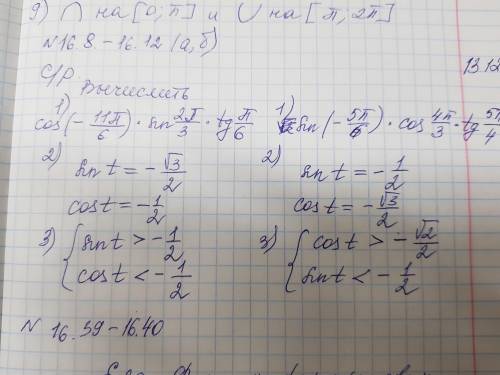 9) ∩ на [0; π] и ∪ на [π; 2π]
N16.8 - 16.12 (а, б)
13.12
С/р
Вычислить
1) cos(-11π/6) · sin 2π/3 · tg π/6
2) sin t = -√3/2
cos t = -1/2
3) { sin t > -1/2
cos t < -1/2
1) sin(-5π/6) · cos 4π/3 · tg 5π/4
2) sin t = -1/2
cos t = -√3/2
3) { cos t > -√2/2
sin t < -1/2
N 16.39 - 16.40